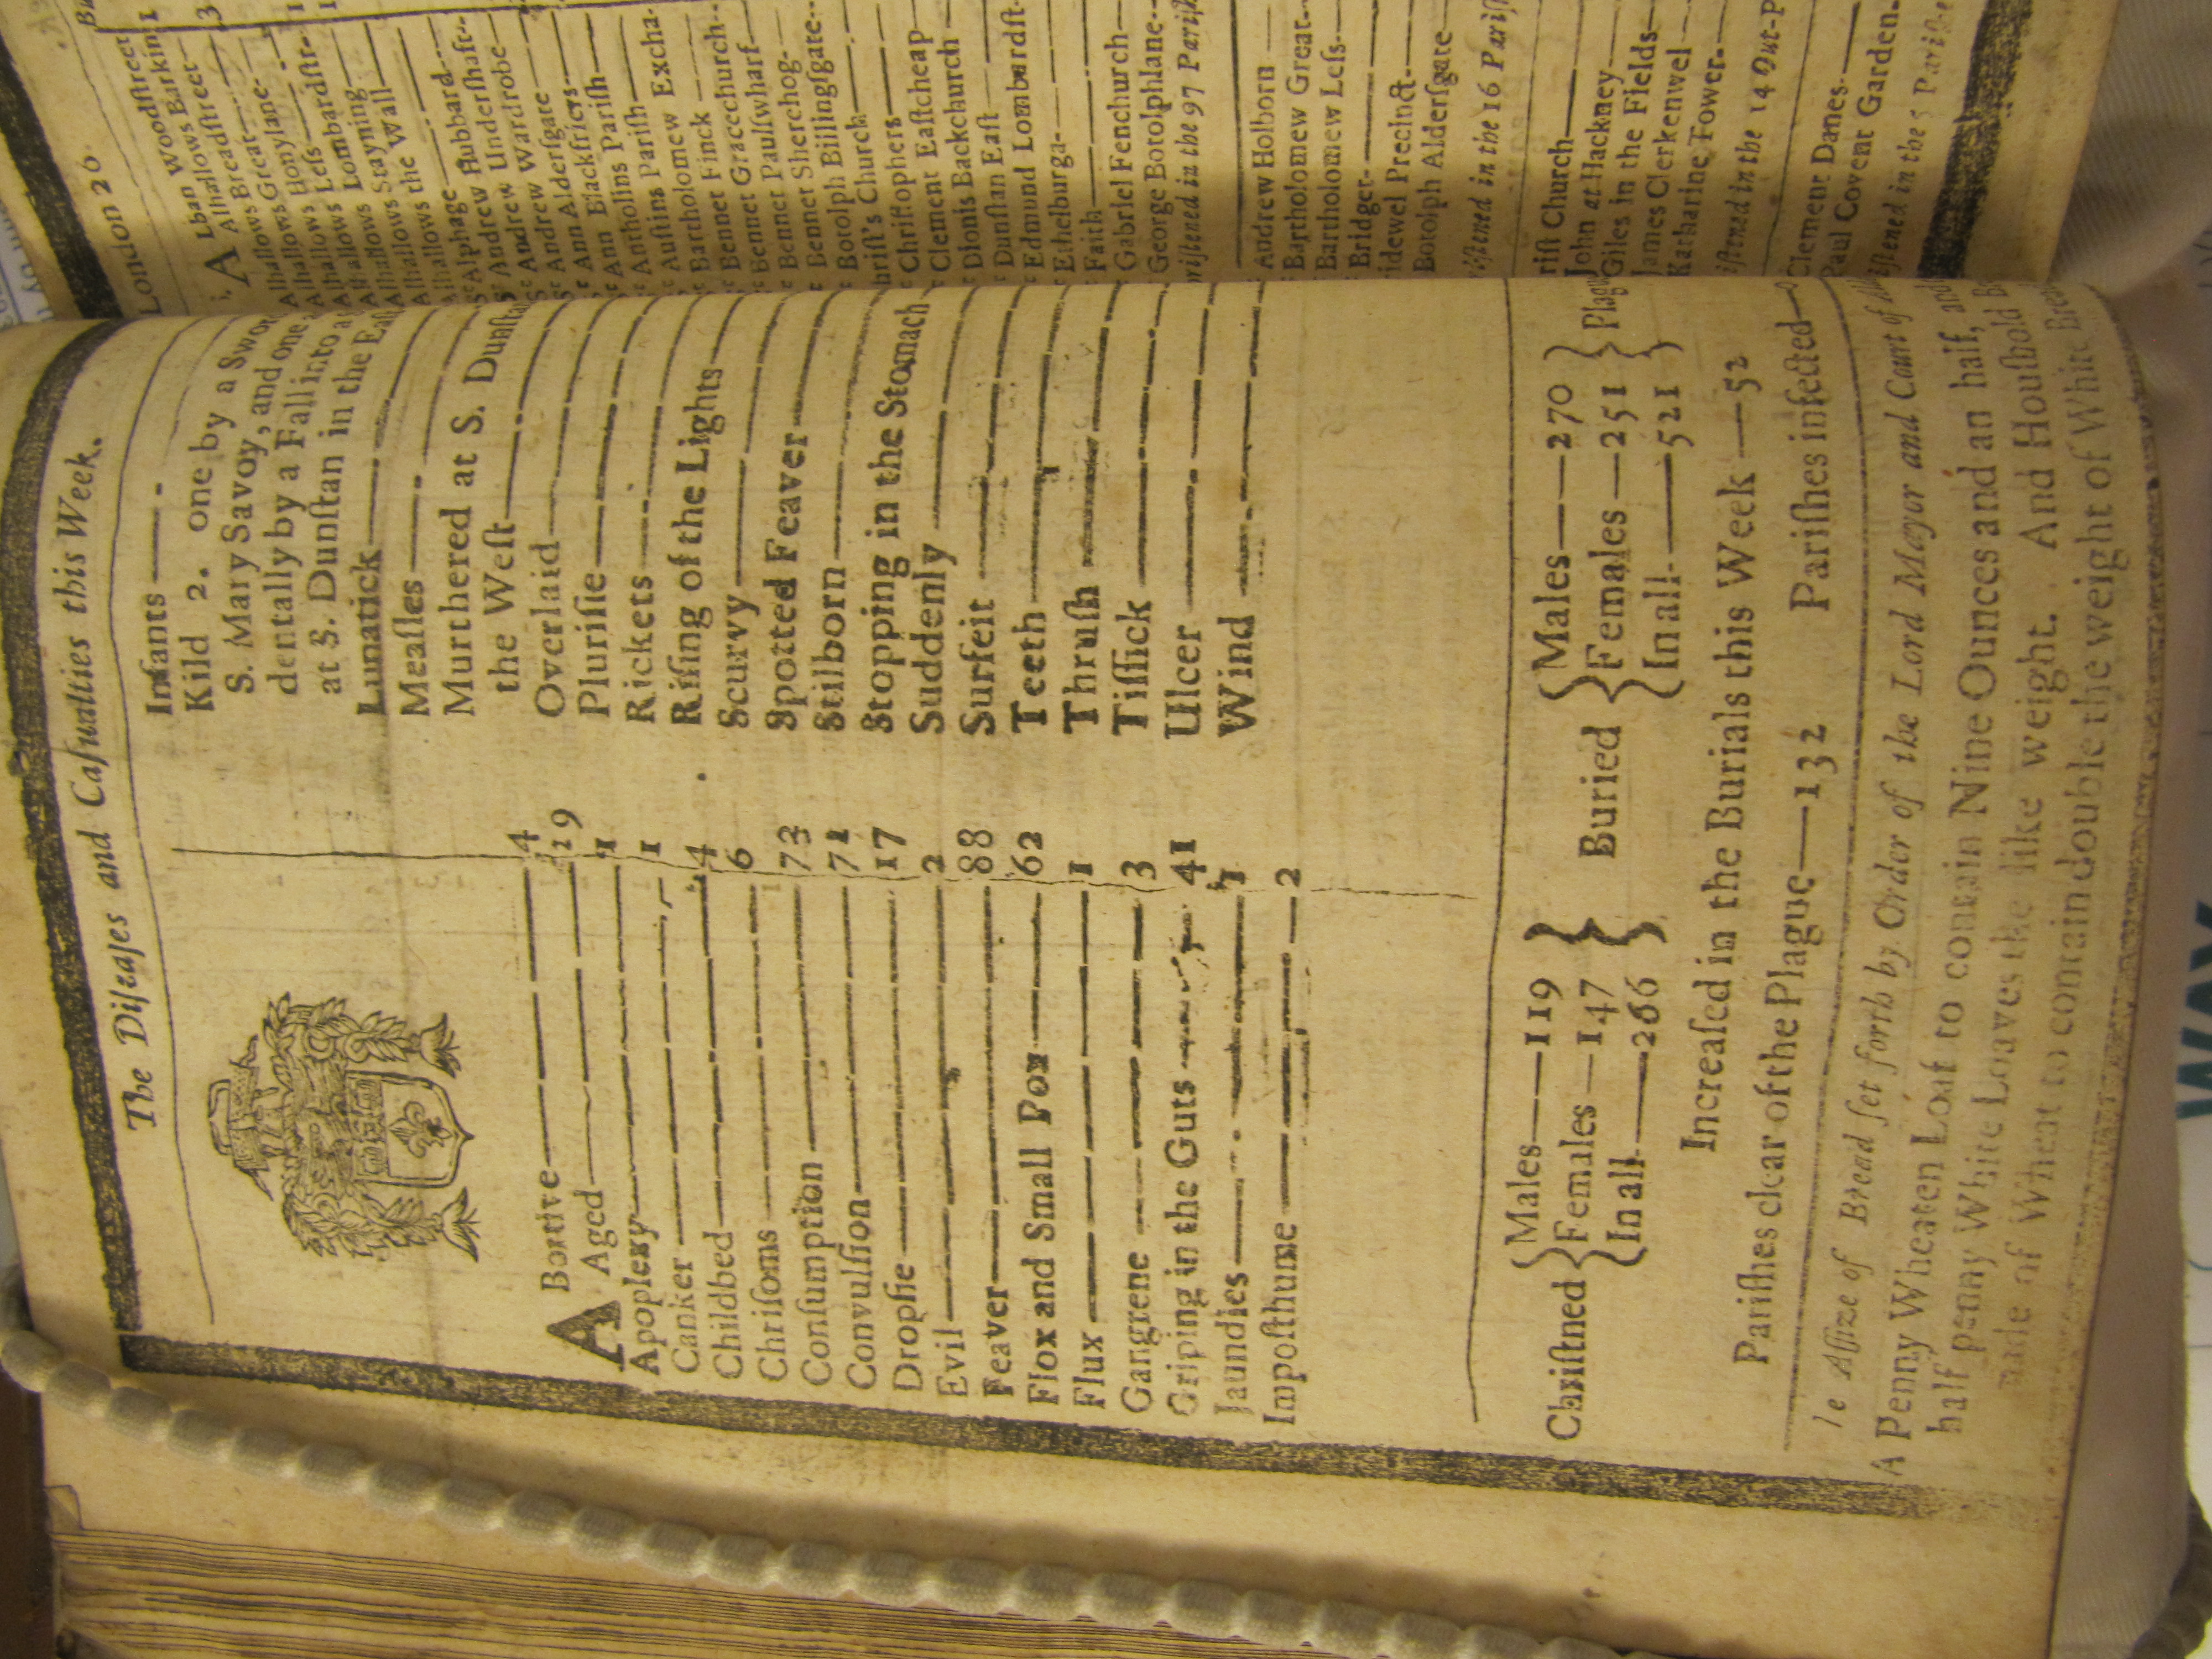 The Diseases and Casualties this Week.
ABortive 4
Aged 19
Apoplexy 1
Canker 1
Childbed 4
Chrisoms 6
Consumption 73
Convulsion 71
Dropsie 17
Evil 2
Feaver 88
Flox and Small Pox 62
Flux 1
Gangrene 3
Griping in the Guts 41
Jaundies 1
Imposthume 2
Infants
Kild 2. one by a
S. Mary Savoy, and one
dentally by a Fall into
at S. Dunstan in the
Lunatick
Measles
Murthered at S.
the West
Overlaid
Plurisie
Rickets
Rising of the Lights
Scurvy
Spotted Feaver
Stilborn
Stopping in the Stomach
Suddenly
Surfeit
Teeth
Thrush
Tissick
Ulcer
Wind
Christned { Males—119 Females—147 In all—266 }
Buried { Males—270 Females—251 In all—521 }
Increased in the Burials this Week—52
Parishes clear of the Plague—132 Parishes infected—
Assize of Bread set forth by Order of the Lord Mayor and Court of
A Penny Wheaten Loaf to contain Nine Ounces and an half, and
half penny White Loaves the like weight. And Houshold
made of Wheat to contain double the weight of White
London 26
ALban Woodstreet
Alhallows Barkin 1
Alhallows Breadstreet 3
Alhallows Great
Alhallows Honylane
Alhallows Less
Alhallows Lombardstr
Alhallows Stayning
Alhallows the Wall
Alphage
Andrew Hubbard
Andrew Undershaft
Andrew Wardrobe
Ann Aldersgate
Ann Blackfriers
Antholins Parish
Austins Parish
Bartholomew Excha-
Bennet Finck
Bennet Gracechurch
Bennet Paulswharf
Bennet Sherehog
Botolph Billingsgate
Christ's Church
Christophers
Clement Eastcheap
Dionis Backchurch
Dunstan East
Edmund Lombardst
Ethelburga
Faith
Gabriel Fenchurch
George Botolphlane
in the 97
Andrew Holborn
Bartholomew Great
Bartholomew Less
Bridget
Precinct
Botolph Aldersgate
in the 16
Church
John at Hackney
Giles in the Fields
James Clerkenwel
Katharine Tower
in the 14 Out-P
Clement Danes
Paul Covent Garden
in the 5